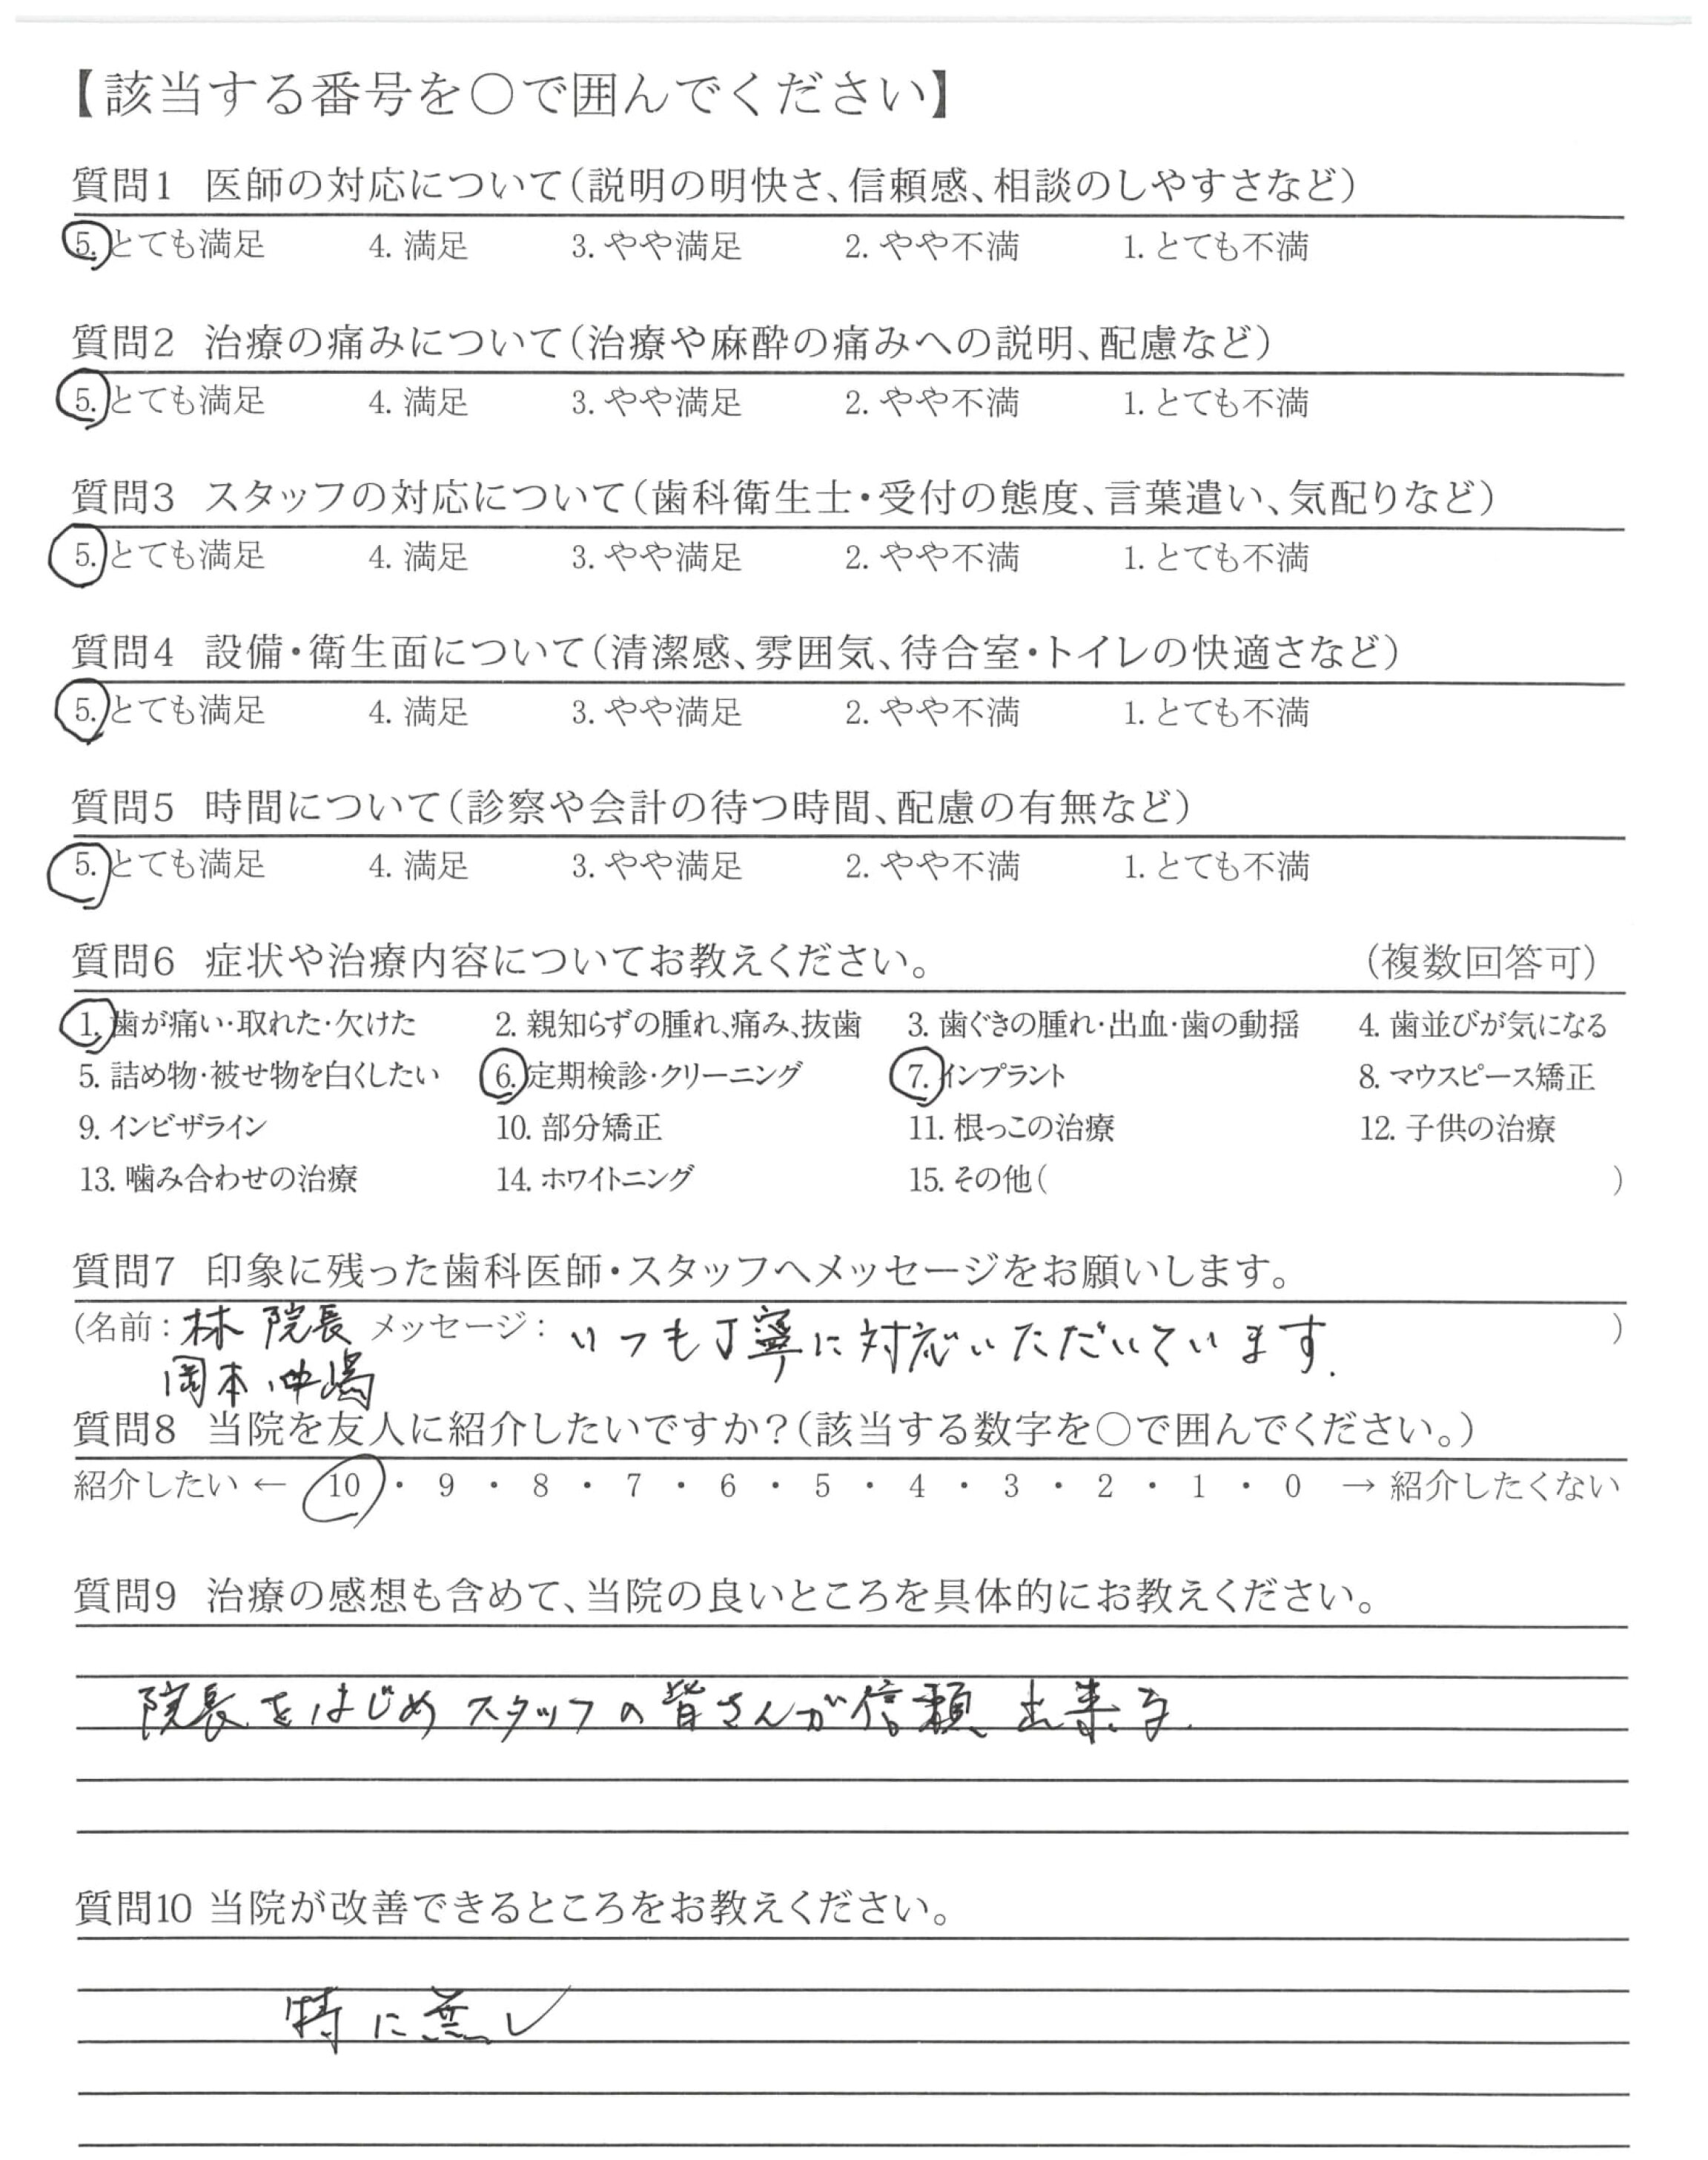 【該当する番号を○で囲んでください】
質問1 医師の対応について(説明の明快さ、信頼感、相談のしやすさなど)
5. とても満足 4. 満足 3. やや満足 2. やや不満 1. とても不満
質問2 治療の痛みについて(治療や麻酔の痛みへの説明、配慮など)
5. とても満足 4. 満足 3. やや満足 2. やや不満 1. とても不満
質問3 スタッフの対応について(歯科衛生士・受付の態度、言葉遣い、気配りなど)
5. とても満足 4. 満足 3. やや満足 2. やや不満 1. とても不満
質問4 設備・衛生面について(清潔感、雰囲気、待合室・トイレの快適さなど)
5. とても満足 4. 満足 3. やや満足 2. やや不満 1. とても不満
質問5 時間について(診察や会計の待つ時間、配慮の有無など)
5. とても満足 4. 満足 3. やや満足 2. やや不満 1. とても不満
質問6 症状や治療内容についてお教えください。 (複数回答可)
1. 歯が痛い・取れた・欠けた 2. 親知らずの腫れ、痛み、抜歯 3. 歯ぐきの腫れ・出血・歯の動揺 4. 歯並びが気になる
5. 詰め物・被せ物を白くしたい 6. 定期検診・クリーニング 7. インプラント 8. マウスピース矯正
9. インビザライン 10. 部分矯正 11. 根っこの治療 12. 子供の治療
13. 噛み合わせの治療 14. ホワイトニング 15. その他( )
質問7 印象に残った歯科医師・スタッフへメッセージをお願いします。
(名前: 林 院長 メッセージ: いつも丁寧に対応いただいています. )
岡本
質問8 当院を友人に紹介したいですか?(該当する数字を○で囲んでください。)
紹介したい ← 10 ・ 9 ・ 8 ・ 7 ・ 6 ・ 5 ・ 4 ・ 3 ・ 2 ・ 1 ・ 0 → 紹介したくない
質問9 治療の感想も含めて、当院の良いところを具体的にお教えください。
院長をはじめスタッフの皆さんが信頼出来る.
質問10 当院が改善できるところをお教えください。
特に無し